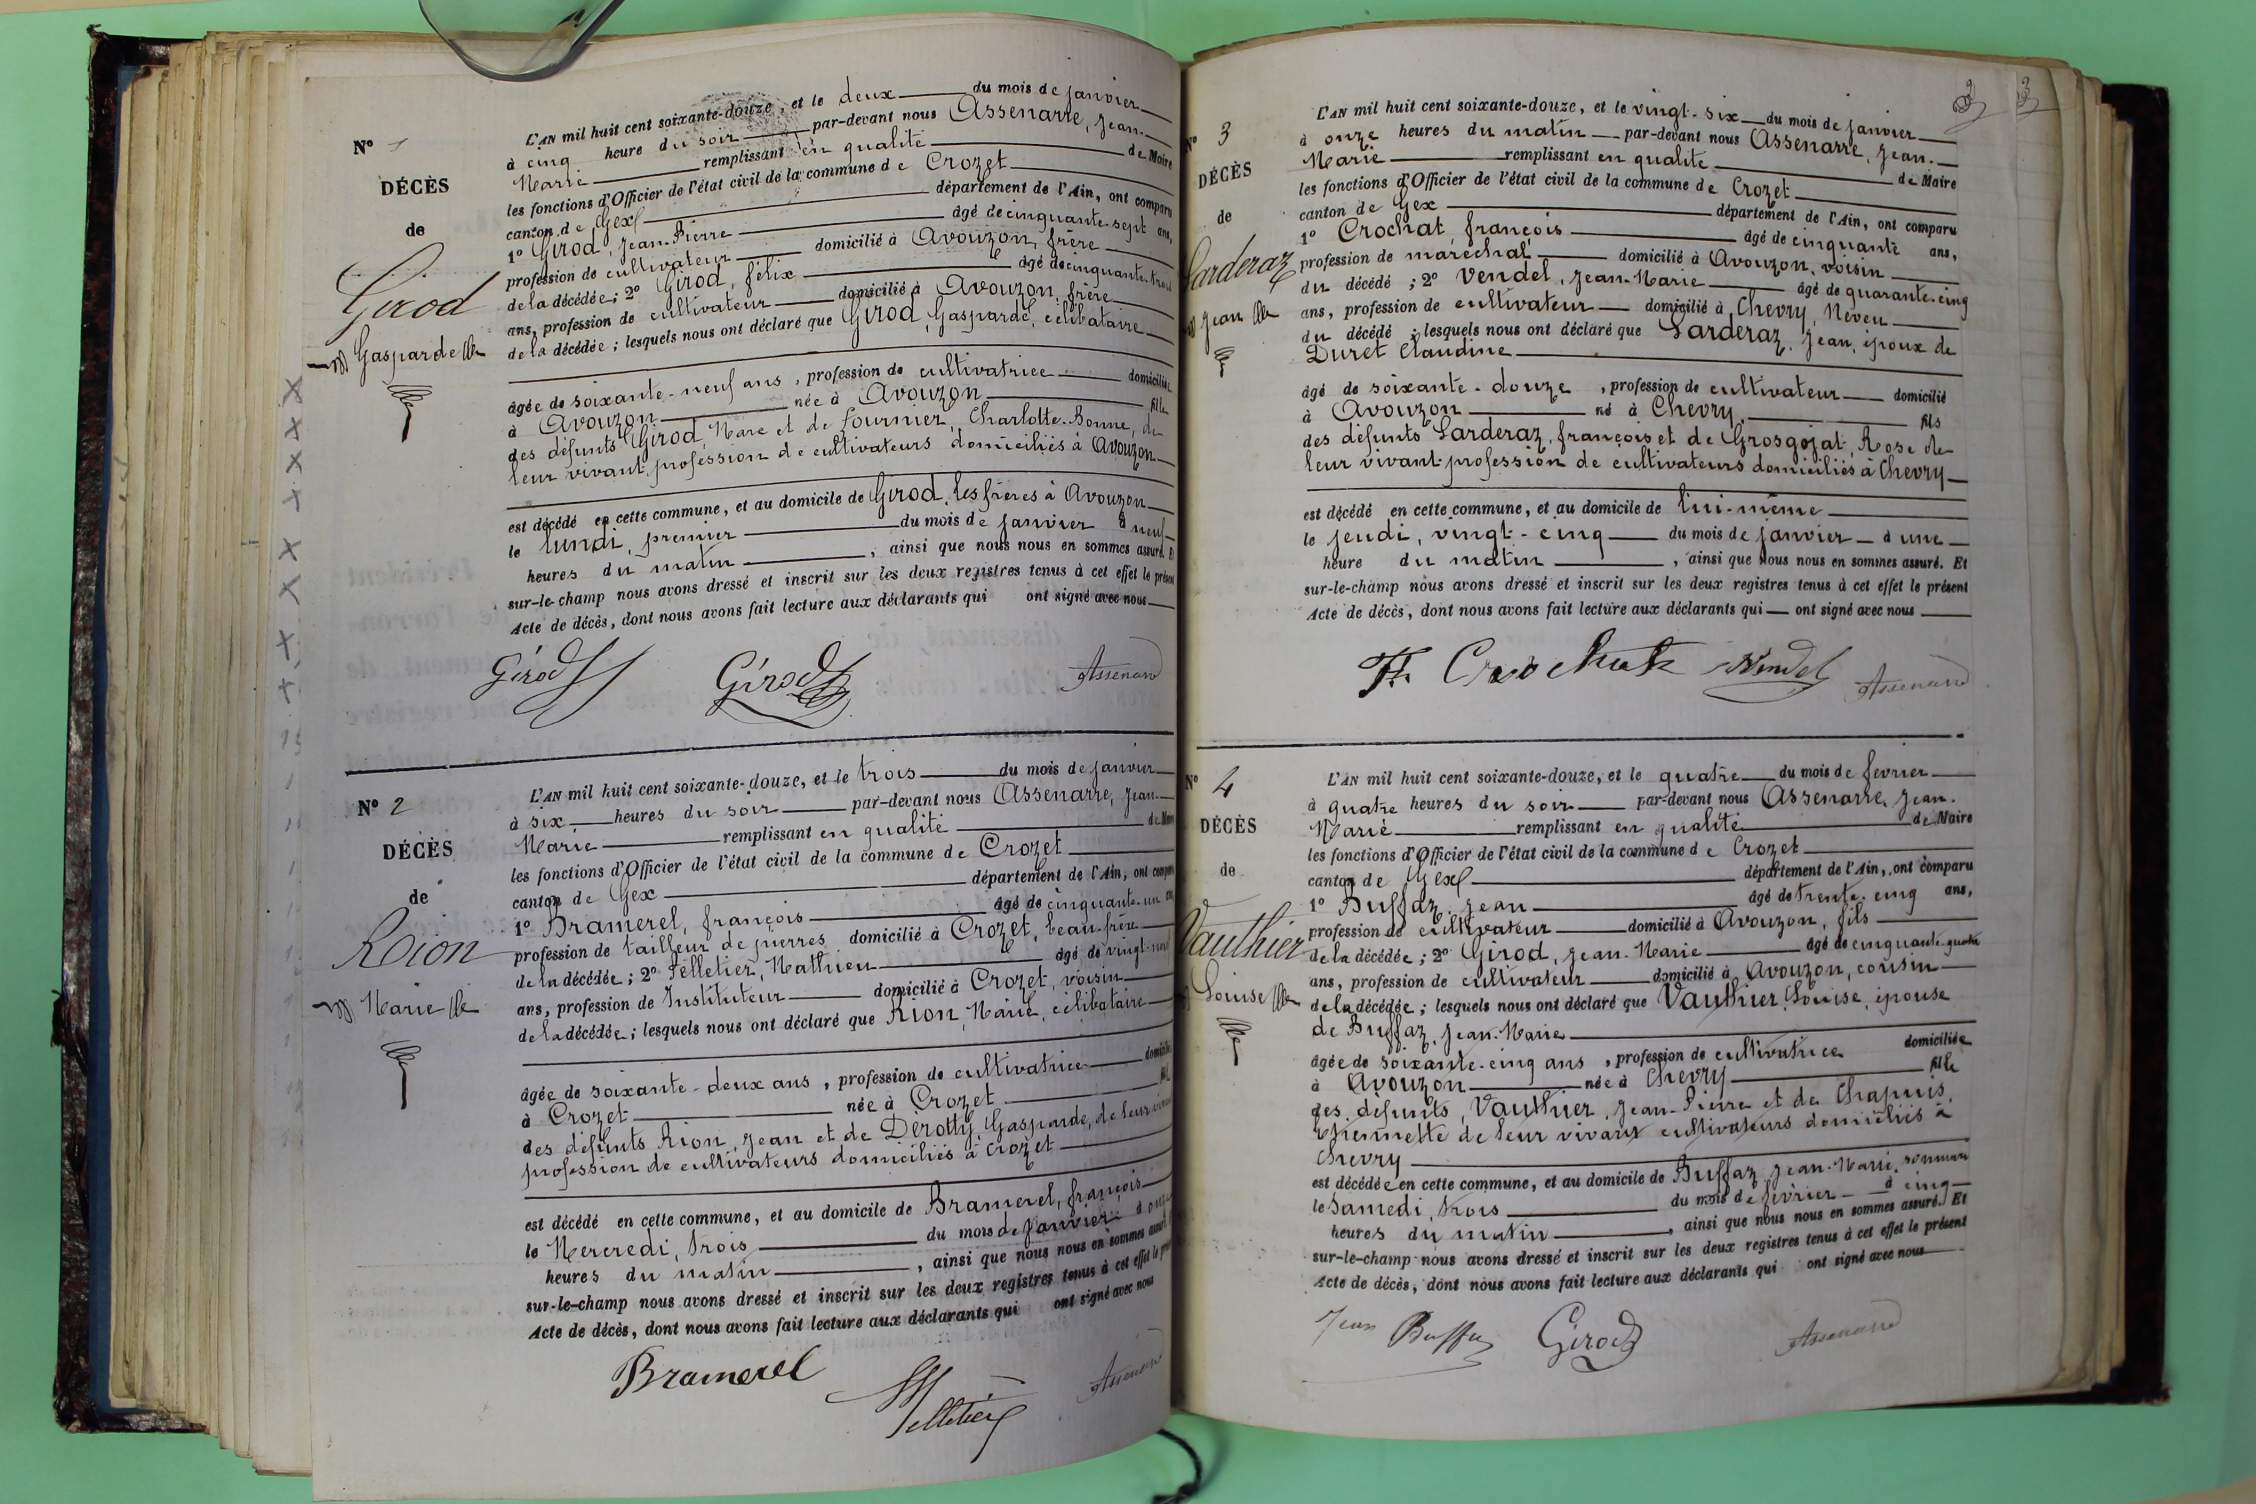 N° 1
DÉCÈS
de
Girod
Gasparde
L'AN mil huit cent soixante-douze, et le deux du mois de janvier
à cinq heure du soir par-devant nous Assenare, Jean-
Marie remplissant en qualité de Maire
les fonctions d'Officier de l'état civil de la commune de Crozet
canton de Gex département de l'Ain, ont comparu
1° Girod, Jean-Pierre âgé de cinquante-sept ans,
profession de cultivateur domicilié à Avouzon, frère
de la décédée; 2° Girod, félix âgé de cinquante-trois
ans, profession de cultivateur domicilié à Avouzon, frère
de la décédée; lesquels nous ont déclaré que Girod, Gasparde, célibataire
âgée de soixante-neuf ans, profession de cultivatrice domiciliée
à Avouzon née à Avouzon fille
des défunts Girod, Marc et de fournier, Charlotte-Bonne, de
leur vivant, profession de cultivateurs domiciliés à Avouzon
est décédé en cette commune, et au domicile de Girod, les frères à Avouzon
le lundi, premier du mois de janvier à neuf
heures du matin, ainsi que nous nous en sommes assuré. Et
sur-le-champ nous avons dressé et inscrit sur les deux registres tenus à cet effet le présent
Acte de décès, dont nous avons fait lecture aux déclarants qui ont signé avec nous
Girod Girod Assenare
N° 2
DÉCÈS
de
Rion
Marie
L'AN mil huit cent soixante-douze, et le trois du mois de janvier
à six heures du soir par-devant nous Assenare, Jean-
Marie remplissant en qualité de Maire
les fonctions d'Officier de l'état civil de la commune de Crozet
canton de Gex département de l'Ain, ont comparu
1° Bramerel, françois âgé de cinquante-un ans
profession de tailleur de pierres domicilié à Crozet, beau-frère
de la décédée; 2° Pelletier, Mathieu âgé de vingt-neuf
ans, profession de Instituteur domicilié à Crozet, voisin
de la décédée; lesquels nous ont déclaré que Rion, Marie, célibataire
âgée de soixante-deux ans, profession de cultivatrice domiciliée
à Crozet née à Crozet fille
des défunts Rion, Jean et de Derotty, Gasparde, de leur vivant
profession de cultivateurs domiciliés à Crozet
est décédé en cette commune, et au domicile de Bramerel, françois
le Mercredi, trois du mois de janvier à onze
heures du matin, ainsi que nous nous en sommes assuré. Et
sur-le-champ nous avons dressé et inscrit sur les deux registres tenus à cet effet le présent
Acte de décès, dont nous avons fait lecture aux déclarants qui ont signé avec nous
Bramerel Pelletier Assenare
3 3
N° 3
DÉCÈS
de
Larderaz
Jean
L'AN mil huit cent soixante-douze, et le vingt-six du mois de janvier
à onze heures du matin par-devant nous Assenare, Jean-
Marie remplissant en qualité de Maire
les fonctions d'Officier de l'état civil de la commune de Crozet
canton de Gex département de l'Ain, ont comparu
1° Crochat, françois âgé de cinquante ans,
profession de maréchal domicilié à Avouzon, voisin
du décédé; 2° Vendel, Jean-Marie âgé de quarante-cinq
ans, profession de cultivateur domicilié à Chevry, Neveu
du décédé; lesquels nous ont déclaré que Larderaz, Jean, époux de
Duret Claudine
âgé de soixante-douze, profession de cultivateur domicilié
à Avouzon né à Chevry, fils
des défunts Larderaz, françois et de Grosgojat, Rose de
leur vivant profession de cultivateurs domiciliés à Chevry
est décédé en cette commune, et au domicile de lui-même
le jeudi, vingt-cinq du mois de janvier à une
heure du matin, ainsi que nous nous en sommes assuré. Et
sur-le-champ nous avons dressé et inscrit sur les deux registres tenus à cet effet le présent
Acte de décès, dont nous avons fait lecture aux déclarants qui ont signé avec nous
Fr. Crochat Vendel Assenare
N° 4
DÉCÈS
de
Vauthier
Louise
L'AN mil huit cent soixante-douze, et le quatre du mois de février
à quatre heures du soir par-devant nous Assenare, Jean-
Marie remplissant en qualité de Maire
les fonctions d'Officier de l'état civil de la commune de Crozet
canton de Gex département de l'Ain, ont comparu
1° Buffaz, Jean âgé de trente-cinq ans,
profession de cultivateur domicilié à Avouzon, fils
de la décédée; 2° Girod, Jean-Marie âgé de cinquante-quatre
ans, profession de cultivateur domicilié à Avouzon, cousin
de la décédée; lesquels nous ont déclaré que Vauthier, Louise, épouse
de Buffaz, Jean-Marie
âgée de soixante-cinq ans, profession de cultivatrice domiciliée
à Avouzon née à Chevry fille
des défunts, Vauthier, Jean-Pierre et de Chapuis,
Etiennette de leur vivant cultivateurs domiciliés à
Chevry
est décédée en cette commune, et au domicile de Buffaz, Jean-Marie, son mari
le Samedi, trois du mois de février à cinq
heures du matin, ainsi que nous nous en sommes assuré. Et
sur-le-champ nous avons dressé et inscrit sur les deux registres tenus à cet effet le présent
Acte de décès, dont nous avons fait lecture aux déclarants qui ont signé avec nous
Jean Buffaz Girod Assenare